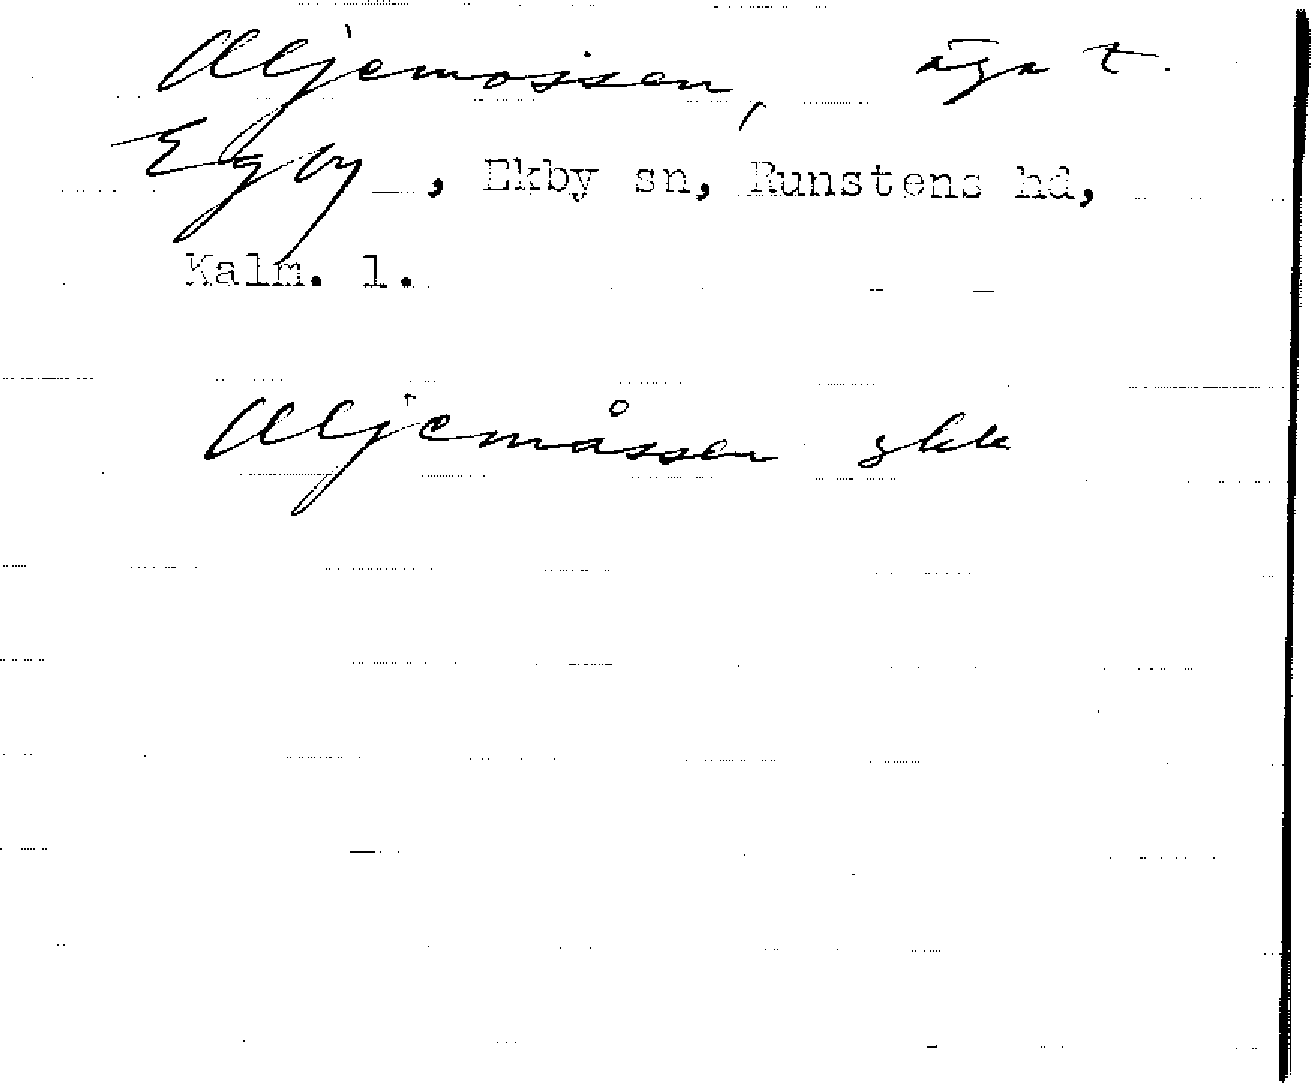 Aljemossen, äga t.
Egby, Ekby sn, Runstens hd,
Kalm. l.
Aljemåssen skk